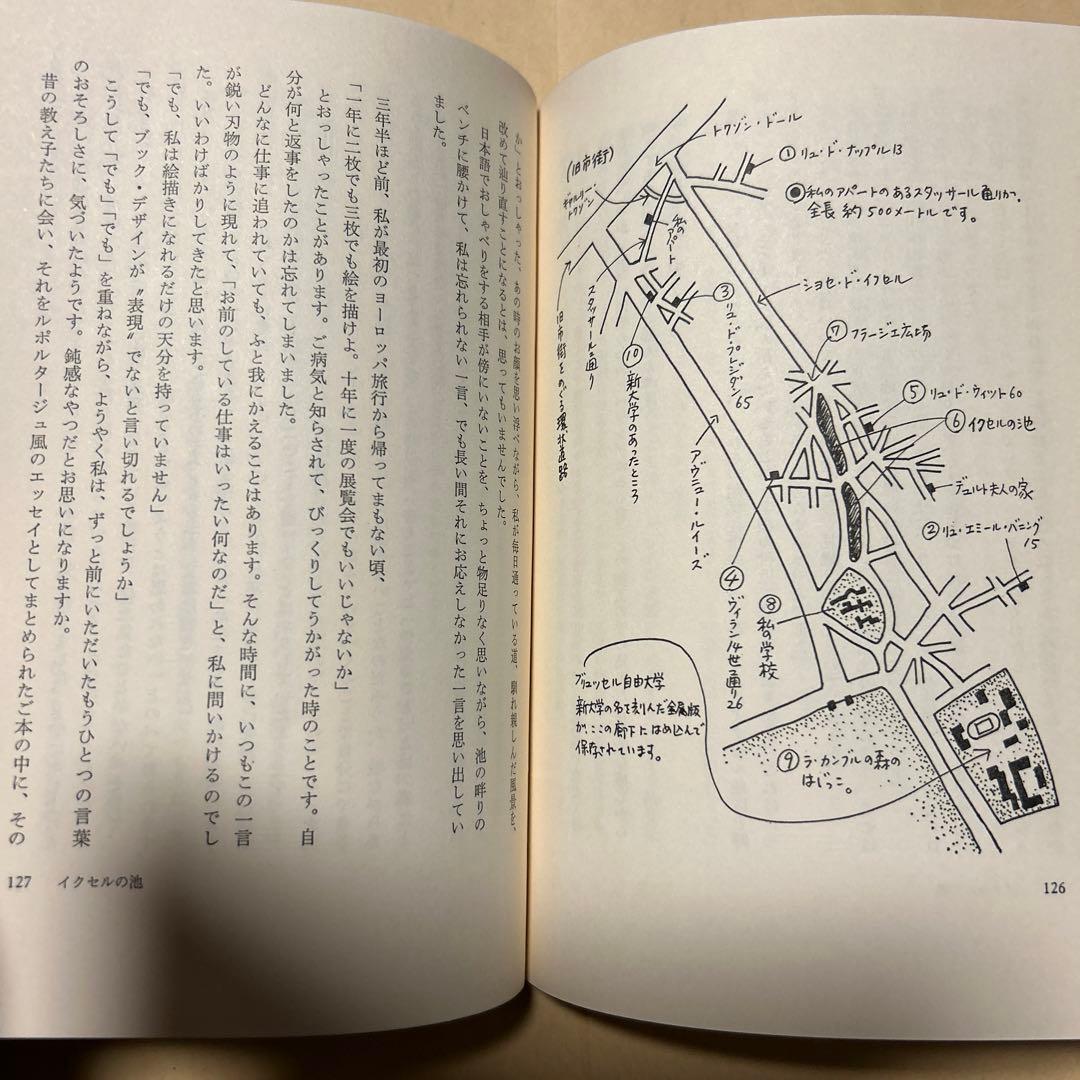 トワゾン・ドール
(旧市街)
ギャルリー・
トワゾン
① リュ・ド・ナップル13
●私のアパートのあるスタッサール通りか、
全長 約500メートルです。
私の
アパート
ショセ・ド・イクセル
③ リュ・ド・プレジダン 65
スタッサール通り
旧市街をめぐる環状道路
⑩ 新大学のあったところ
⑦ フラージェ広場
⑤ リュ・ド・ウィット60
⑥ イクセルの池
デュルト夫人の家
② リュ・エミール・バニング
15
アヴニュー・ルイーズ
④ ヴィラン14世通り26
⑧ 私の学校
ブリュッセル自由大学
新大学の名を刻んだ金属版
が、ここの廊下にはめ込んで
保存されています。
⑨ ラ・カンブルの森の
はじっこ。
126
か」とおっしゃった、あの時のお顔を思い浮べながら、私が毎日通っている道、馴れ親しんだ風景を、
改めて辿り直すことになるとは、思ってもいませんでした。
日本語でおしゃべりをする相手が傍にいないことを、ちょっと物足りなく思いながら、池の畔りの
ベンチに腰かけて、私は忘れられない一言、でも長い間それにお応えしなかった一言を思い出してい
ました。
三年半ほど前、私が最初のヨーロッパ旅行から帰ってまもない頃、
「一年に二枚でも三枚でも絵を描けよ。十年に一度の展覧会でもいいじゃないか」
とおっしゃったことがあります。ご病気と知らされて、びっくりしてうかがった時のことです。自
分が何と返事をしたのかは忘れてしまいました。
どんなに仕事に追われていても、ふと我にかえることはあります。そんな時間に、いつもこの一言
が鋭い刃物のように現れて、「お前のしている仕事はいったい何なのだ」と、私に問いかけるのでし
た。いいわけばかりしてきたと思います。
「でも、私は絵描きになれるだけの天分を持っていません」
「でも、ブック・デザインが〝表現〟でないと言い切れるでしょうか」
こうして「でも」「でも」を重ねながら、ようやく私は、ずっと前にいただいたもうひとつの言葉
のおそろしさに、気づいたようです。鈍感なやつだとお思いになりますか。
昔の教え子たちに会い、それをルポルタージュ風のエッセイとしてまとめられたご本の中に、その
127 イクセルの池